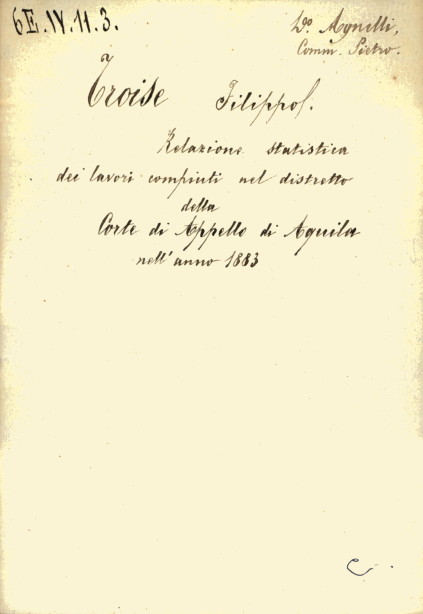 6E.IV.11.3.
D.º Agnelli,
Comm. Pietro.
Troise Filippo.
Relazione statistica
dei lavori compiuti nel distretto
della
Corte di Appello di Aquila
nell'anno 1883